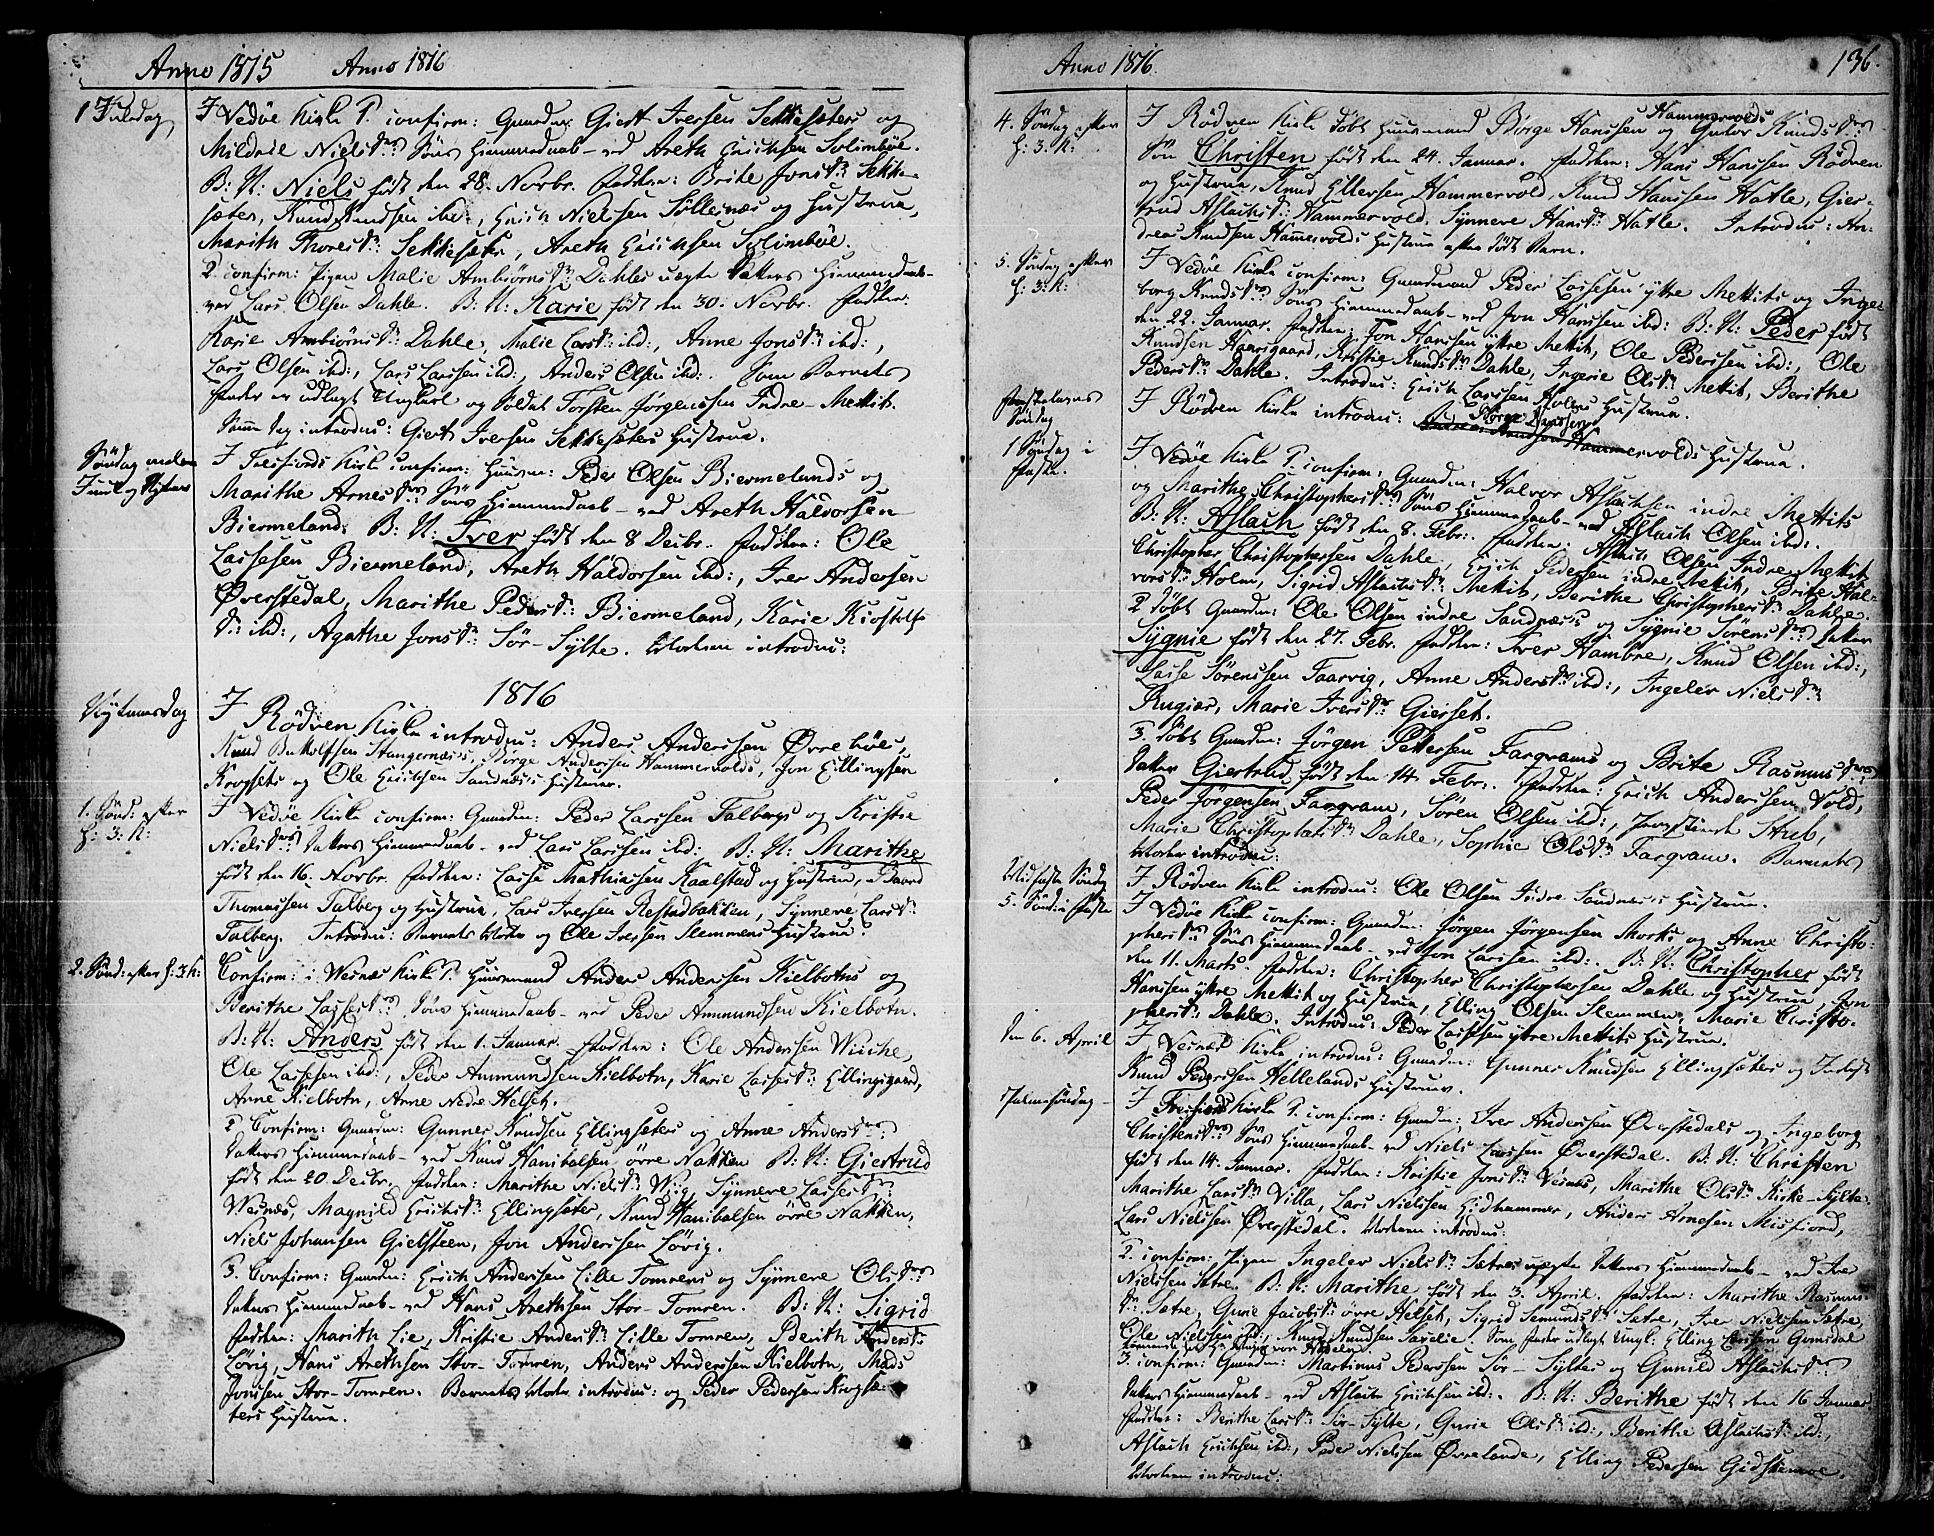 Anno 1815 Anno 1816
1 Juledag
I Vedøe Kirke 1. confirm: Gaardm: Giert Iversen Sekkesæters og
Mildrie Niels Dr: Søns Hjemmedaab ved Areth Erichsen Solimbøe.
B: N: Niels født den 28. Novbr. Faddere: Brite Jons Dr: Sekke-
sæter, Knud Knudsen ibd:, Erich Nielsen Søllesnæs og Hustrue,
Marith Thores Dr: Sekkesæter, Areth Erichsen Solimbøe.
2. confirm: Pigen Malie Ambiørns Dr: Dahles uægte Datters Hjemmedaab
ved Lars Olsen Dahle. B: N: Karie født den 30. Novbr. Faddere:
Karie Ambiørns Dr: Dahle, Malie Lars Dr: ibd:, Anne Jons Dr: ibd:,
Lars Olsen ibd:, Lars Larssen ibd:, Anders Olsen ibd: Som Barnets
Fader er udlagt Ungkarl og Soldat Torsten Jørgenssen Indre-Mettit.
Samme Dag introduc: Giert Iversen Sekkesæters Hustrue.
Søndag mellem
Juul og Nytaar
I Fresfiords Kirke confirm: Huusm: Peder Olsen Biermelands og
Marithe Arnes Dr: Søns Hjemmedaab ved Areth Haldorsen
Biermeland. B: N: Iver født den 8 Decbr. Faddere: Ole
Lassesen Biermeland, Areth Haldorsen ibd:, Iver Andersen
Øverstedal, Marithe Peders Dr: Biermeland, Karie Kiostolfs
Dr: ibd:, Agathe Jons Dr: Sør-Sylte. Moderen introduc:
1816
Nytaarsdag
I Rødven Kirke introduc: Anders Anderssen Øvrebøes,
Knud Stangernæs, Børge Andersen Hammervolds, Jon Ellingsen
Krogsets og Ole Erichsen Sandnæss Hustruer.
1. Sønd: efter
H: 3: K:
I Vedøe Kirke confirm: Gaardm: Peder Larssen Talbergs og Kristie
Niels Dr: Datters Hjemmedaab ved Lars Larssen ibd: B: N: Marithe
født den 16. Novbr. Faddere: Lasse Mathiassen Kaalstad og Hustrue, Baard
Thomassen Talberg og Hustrue, Lars Iversen Restadbakken, Synnere Lars Dr:
Talberg. Introduc: Barnets Moder og Ole Iversen Slemmens Hustrue.
2. Sønd: efter H: 3. K:
Confirm: i Wesnæs Kirke 1. Huusmand Anders Andersen Kielbotns og
Berithe Lasses Dr: Søns Hjemmedaab ved Peder Ammundsen Kielbotn.
B: N: Anders født den 1. Januar. Faddere: Ole Andersen Wiiche,
Ole Lassesen ibd:, Peder Ammundsen Kielbotn, Karie Lasses Dr: Ellingsgaard,
Anne Kielbotn, Arne Nedre Helset.
2 Confirm: Gaardm: Gunner Knudsen Ellingsæters og Anne Anders Dr:
Datters Hjemmedaab ved Knud Hanibalsen øvre Nakken B: N: Giertrud
født den 20 Decbr. Faddere: Marithe Niels Dr: Wig, Synnere Lasses Dr:
Wesnæs, Magnild Erichs Dr: Ellingsæter, Knud Hanibalsen øvre Nakken,
Niels Johansen Gielsteen, Jon Anderssen Løvig.
3. Confirm: Gaardm: Erich Anderssen Lille Tomrens og Synnere Ols Dr:
Datters Hjemmedaab ved Hans Arethsen Stor-Tomren. B: N: Sigrid
Faddere: Marith Lie, Kristie Anders Dr: Lille Tomren, Berith Anders Dr:
Løvig, Hans Arethsen Stor-Tomren, Anders Anderssen Kielbotn, Mads
Jonssen Stor-Tomren. Barnets Moder introduc: og Peder Pedersen Krogsæ-
ters Hustrue.
Anno 1816. 136.
4. Søndag efter
H: 3: K:
Hammervolds
I Rødven Kirke døbt Huusmand Børge Hanssen og Guroe Knuds Dr:
Søn Christen født den 24. Januar. Faddere: Hans Hanssen Rødven
og Hustrue, Knud Ellersen Hammervold, Knud Hanssen Hatle, Gier-
trud Aslachs Dr: Hammervold, Synnere Hans Dr: Hatle. Introduc: An-
dreas Knudsen Hammervolds Hustrue efter død Barn.
5. Søndag efter
H: 3: K:
I Vedøe Kirke confirm: Gaardmand Peder Lassesen ytre Mettits og Inge-
borg Knuds Dr: Søns Hjemmedaab ved Jon Hanssen ibd: B: N: Peder født
den 22. Januar. Faddere: Jon Hanssen ytre Mettit, Ole Pederssen ibd:, Ole
Knudsen Haarsgaard, Kristie Knuds Dr: Dahle, Ingerie Ols Dr: Mettit, Berithe
Peders Dr: Dahle. Introduc: Erich Larssen Hustrue.
Fastelavns
Søndag
I Rødven Kirke introduc: Børge Hanssen Hammervolds Hustrue.
1 Søndag i
Faste.
I Vedøe Kirke 1. confirm: Gaardm: Halvor Aslachsen indre Mettits
og Marithe Christophers Dr: Søns Hjemmedaab ved Aslach Olsen ibd:.
B: N: Aslach født den 8. Febr: Faddere: Aslach Olsen Indre Mettit,
Christopher Christophersen Dahle, Erich Pedersen indre Mettit, Brite Hal-
vors Dr: Holm, Sigrid Aslachs Dr: Mettit, Berithe Christophers Dr: Dahle.
2 døbt Gaardm: Ole Olsen indre Sandnæs's og Sygnie Sørens Dr: Datter
Sygnie født den 27. Febr. Faddere: Iver Hambre, Knud Olsen ibd:,
Lasse Sørenssen Faarvig, Anne Anders Dr: ibd:, Ingeler Niels Dr:
Rugiær, Marie Ivers Dr: Gierset.
3. døbt Gaardm: Jørgen Pettersen Fargrams og Brite Rasmus Dr:
Datter Giertrud født den 14 Febr. Faddere: Erich Anderssen Vold,
Peder Jørgensen Fargram, Søren Olsen ibd:, Stub,
Marie Christophers Dr: Dahle, Sophie Ols Dr: Fargram. Barnets
Moder introduc:
Midfaste Søndag
I Rødven Kirke introduc: Ole Olsen Indre Sandnæs's Hustrue.
5. Sønd: i Faste
I Vedøe Kirke confirm: Gaardm: Jørgen Jørgensen Morks og Anne Christo-
phers Dr: Søns Hjemmedaab ved Jon Larssen ibd:. B: N: Christopher født
den 11. Marts. Faddere: Christopher Christophersen Dahle og Hustrue, Jon
Hanssen ytre Mettit og Hustrue, Elling Olsen Slemmen, Marie Christo-
phers Dr: Dahle. Introduc: Peder Lassesen ytre Mettits Hustrue.
Den 6. April
I Vesnæs Kirke introduc: Gaardm: Gunner Knudsen Ellingsæters og Inderst
Knud Pederssen Hellelands Hustruer.
Palmesøndag
I Fresfiords Kirke 1. confirm: Gaardm: Iver Andersen Øverstedals og Ingeborg
Christens Dr: Søns Hjemmedaab ved Niels Larssen Øverstedal. B: N: Christen
født den 14. Januar. Faddere: Kristie Jons Dr: Vesnæs, Marithe Ols Dr: Kirke-Sylte,
Marithe Lars Dr: Villa, Lars Nielsen Eidhammer, Anders Arnesen Misfiord,
Lars Nielsen Øverstedal. Moderen introduc:
2. confirm: Pigen Ingeler Niels Dr: Sætres uægte Datters Hjemmedaab ved Iver
Nielssen Sætre. B: N: Marithe født den 3. April. Faddere: Marithe Rasmus
Dr: Sætre, Gurie Jacobs Dr: øvre Helset, Sigrid Semunds Dr: Sætre, Iver Nielssen Sætre,
Ole Nielssen ibd:, Knud Knudsen Sæselie. Som Fader udlagt Ungk: Elling Gomsdal

3. confirm: Gaardm: Martinus Pederssen Sør-Syltes og Gunild Aslachs Dr:
Datters Hjemmedaab ved Aslach Erichsen ibd:. B: N: Berithe født den 16 Januar
Faddere: Berithe Lars Dr: Sør-Sylte, Gurie Ols Dr: ibd:, Berithe Aslachs Dr: ibd:,
Aslach Erichsen ibd:, Peder Nielssen Øvrelande, Elling Pedersen Gidskemoe.
Moderen introduc: